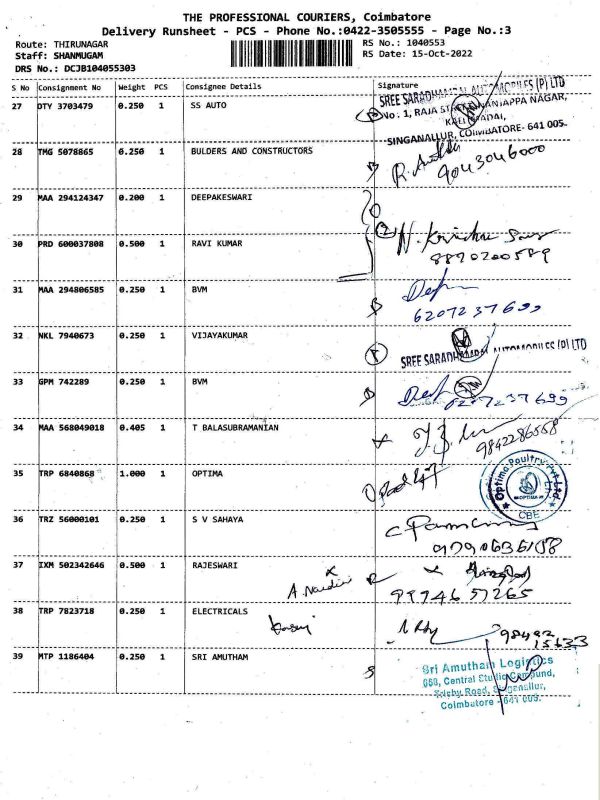 THE PROFESSIONAL COURIERS, Coimbatore
Delivery Runsheet - PCS - Phone No.:0422-3505555 - Page No.:3
Route: THIRUNAGAR
RS No.: 1040553
Staff: SHANMUGAM
RS Date: 15-Oct-2022
DRS No.: DCJB104055303
S No Consignment No Weight PCS Consignee Details Signature
SREE SARADHAMBAL AUTOMOBILES (P) LTD
27 DTY 3703479 0.250 1 SS AUTO
No: 1, RAJA ST NANJAPPA NAGAR,
SINGANALLUR, COIMBATORE- 641 005.
28 TMG 5078865 0.250 1 BULDERS AND CONSTRUCTORS
9043046000
29 MAA 294124347 0.200 1 DEEPAKESWARI
30 PRD 600037808 0.500 1 RAVI KUMAR
8870200589
31 MAA 294806585 0.250 1 BVM
6207237699
32 NKL 7940673 0.250 1 VIJAYAKUMAR
SREE SARADHAMBAL AUTOMOBILES (P) LTD
33 GPM 742289 0.250 1 BVM
6207237699
34 MAA 568049018 0.405 1 T BALASUBRAMANIAN
9842286558
35 TRP 6840868 1.000 1 OPTIMA
Optima Poultry Pvt Ltd
CBE
36 TRZ 56000101 0.250 1 S V SAHAYA
37 IXM 502342646 0.500 1 RAJESWARI
9994657265
38 TRP 7823718 0.250 1 ELECTRICALS
39 MTP 1186404 0.250 1 SRI AMUTHAM
Sri Amutham Logistics
Central Studio Compound,
Trichy Road, Singanallur,
Coimbatore - 641 005.